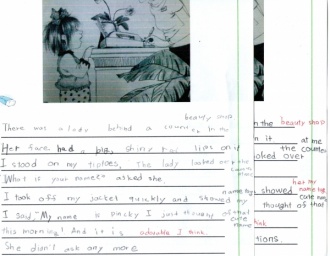 beauty shop
There was a lady behind a counter in the
Her face had a big, shiny lips on it
I stood on my tiptoes, The lady looked over the counter
"What is your name?" asked she
I took off my jacket quickly and showed my name tag
I said, "My name is Pincky I just thought of that cute name
this morning! And it is adorable I think.
She didn't ask any more
in the beauty shop
on it at me
looked over the counter
showed her my name tag
thought of that cute name
think
tions.